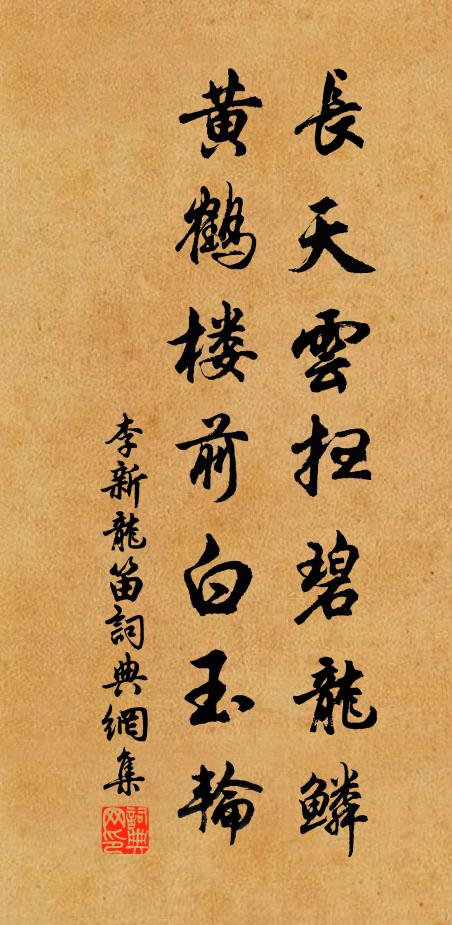 長天雲扫碧龍鱗
黃鶴楼前白玉輪
李新龍笛詞典網集
詞典网印